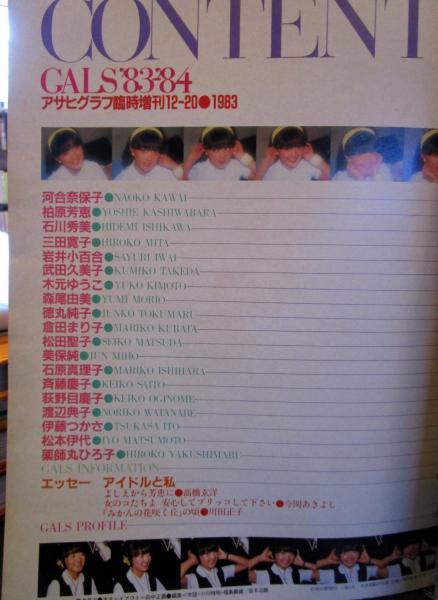 CONTENT
GALS'83-'84
アサヒグラフ臨時増刊12-20●1983
河合奈保子●NAOKO KAWAI
柏原芳恵●YOSHIE KASHIWABARA
石川秀美●HIDEMI ISHIKAWA
三田寛子●HIROKO MITA
岩井小百合●SAYURI IWAI
武田久美子●KUMIKO TAKEDA
木元ゆうこ●YUKO KIMOTO
森尾由美●YUMI MORIO
徳丸純子●JUNKO TOKUMARU
倉田まり子●MARIKO KURATA
松田聖子●SEIKO MATSUDA
美保純●JUN MIHO
石原真理子●MARIKO ISHIHARA
斉藤慶子●KEIKO SAITO
荻野目慶子●KEIKO OGINOME
渡辺典子●NORIKO WATANABE
伊藤つかさ●TSUKASA ITO
松本伊代●IYO MATSUMOTO
薬師丸ひろ子●HIROKO YAKUSHIMARU
GALS INFORMATION
エッセー アイドルと私
よしえから芳恵に●高橋玄洋
女のコたちよ 安心してブリッコして下さい●今関あきよし
「みかんの花咲く丘」の頃●川田正子
GALS PROFILE